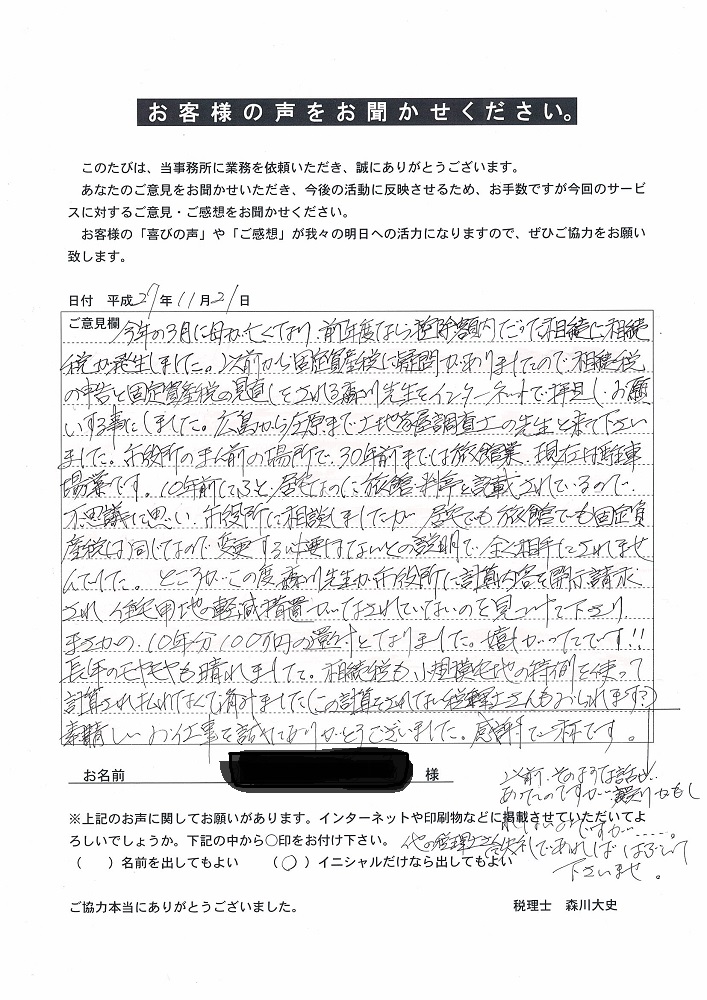 お客様の声をお聞かせください。
このたびは、当事務所に業務を依頼いただき、誠にありがとうございます。
あなたのご意見をお聞かせいただき、今後の活動に反映させるため、お手数ですが今回のサービ
スに対するご意見・ご感想をお聞かせください。
お客様の「喜びの声」や「ご感想」が我々の明日への活力になりますので、ぜひご協力をお願い
致します。
日付 平成27年11月21日
ご意見欄 今年の3月に母が亡くなり、前年度なら控除額内だった相続に相続
税が発生しました。以前から固定資産税に疑問がありましたので、相続税
の申告と固定資産税の見直しをされる森川先生をインターネットで拝見し、お願
いする事にしました。広島から庄原まで土地家屋調査士の先生と来て下さい
ました。市役所のまん前の場所で、30年前までは旅館業、現在は駐車
場業です。10年前にふと、居宅なのに旅館・料亭と記載されているので
不思議に思い、市役所に相談しましたが、居宅でも旅館でも固定資
産税は同じなので変更する必要はないとの説明で、全く相手にされませ
んでした。ところが、この度森川先生が市役所に計算内容を開示請求
され、住宅用地の軽減措置がなされていないのを見つけて下さり
まさかの、10年分100万円の還付となりました。嬉しかったです!!
長年のモヤモヤも晴れました。相続税も小規模宅地の特例を使って
計算され払わなくて済みました(この計算をされてない税理士さんもおられます?)
素晴しいお仕事を誠にありがとうございました。感謝で一杯です。
お名前 様
以前、そのような話が
あったのですが… 誤りかもし
れないのですが……。
他の税理士さんに失礼であれば はぶいて
下さいませ。
※上記のお声に関してお願いがあります。インターネットや印刷物などに掲載させていただいてよ
ろしいでしょうか。下記の中から○印をお付け下さい。
( )名前を出してもよい (○)イニシャルだけなら出してもよい
ご協力本当にありがとうございました。 税理士 森川大史